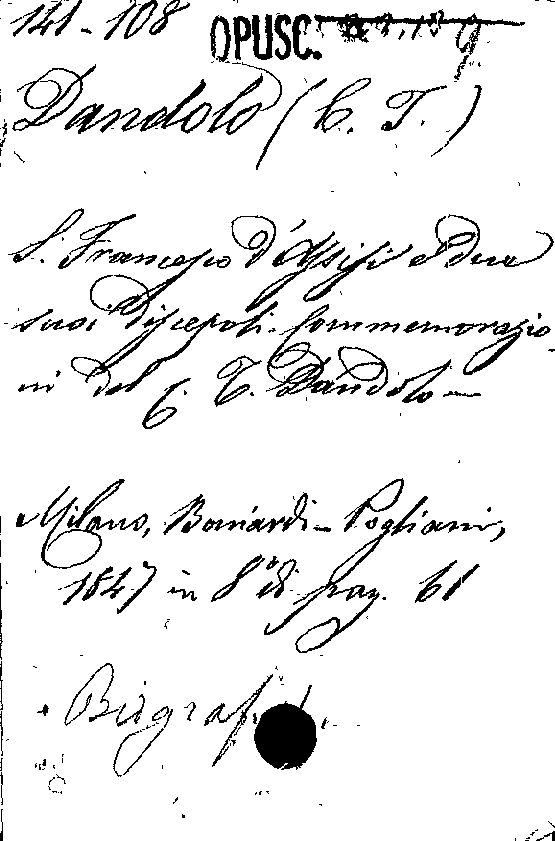 141-108 OPUSC.
Dandolo (C. T.)
S. Francesco d'Assisi e due
suoi Discepoli. Commemorazio-
ni del C. T. Dandolo —
Milano, Boniardi-Pogliani,
1847 in 8° di pag. 61